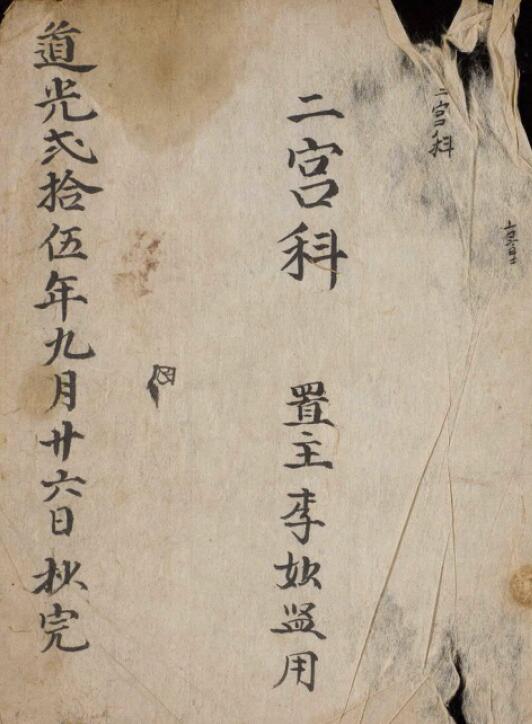 二宮科
二宮科 置主李妝㿽用
道光弍拾伍年九月廿六日秋完